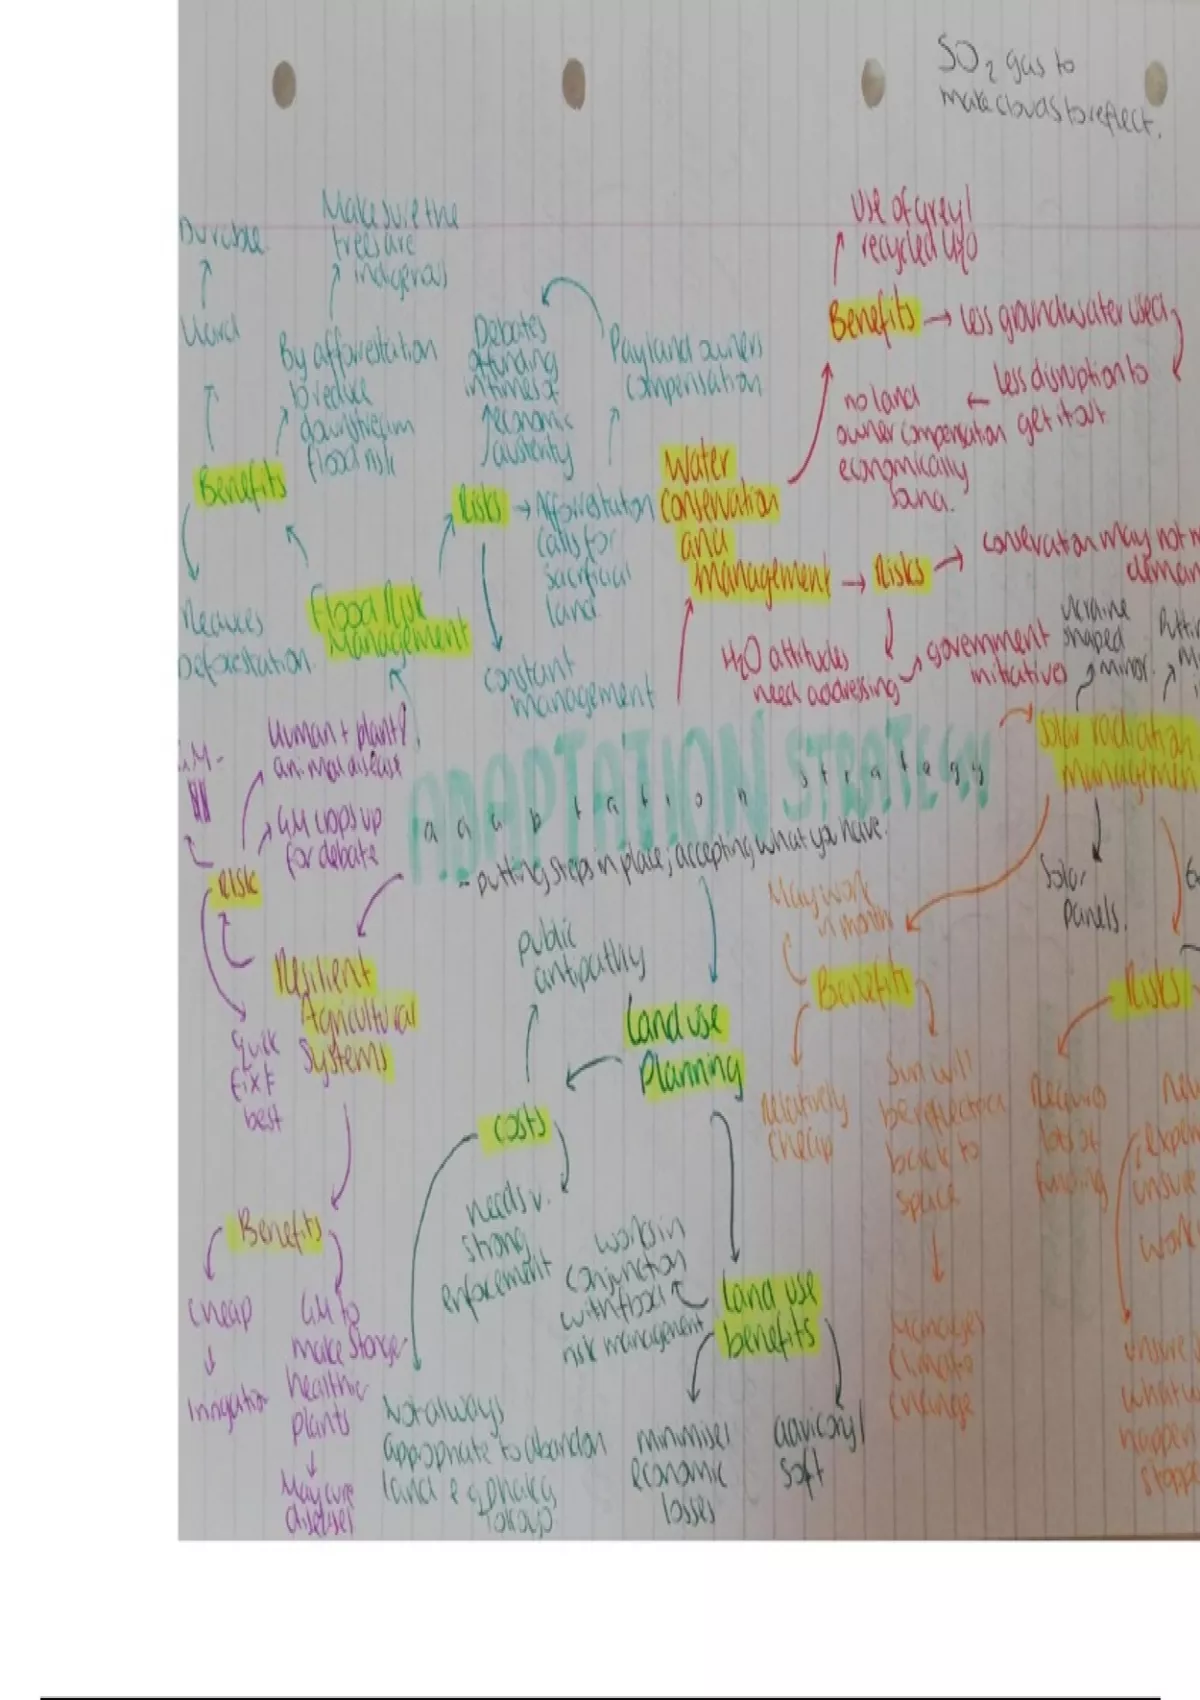 SO2 gas to
make clouds to reflect.
Make sure the
trees are
indigenous
Durable
Hard
By afforestation
to reduce
downstream
flood risk
Benefits
Reduces
Deforestation.
Flood Risk
Management
Debates
of funding
in times of
economic
austerity
Pay land owners
compensation
Risks → Afforestation
calls for
sacrificial
land.
constant
management
Water
conservation
and
management → Risks →
Use of grey/
recycled H2O
Benefits → less groundwater used
less disruption to
get it out
no land
owner compensation
economically
sound.
conservation may not
H2O attitudes
need addressing
government
initiatives
Ukraine
shaped
mirror.
Solar radiation
management
Solar
Panels.
ADAPTATION STRATEGY
strategy
- putting steps in place, accepting what you have.
Human + plant/
animal disease
GM crops up
for debate
Risk
Quick
fix &
best
Resilient
Agricultural
Systems
Benefits
Cheap
↓
Irrigation
GM to
make stronger
healthier
plants
↓
May cure
diseases
public
antipathy
Land use
Planning
costs
needs v.
strong
enforcement
Not always
appropriate to abandon
land
works in
conjunction
with flood
risk management
Land use
benefits
minimises
economic
losses
advisory/
soft
May work
in months
Benefits
relatively
cheap
Sun will
be reflected
back to
space
Manages
Climate
Change
Risks
Requires
lots of
funding
unsure